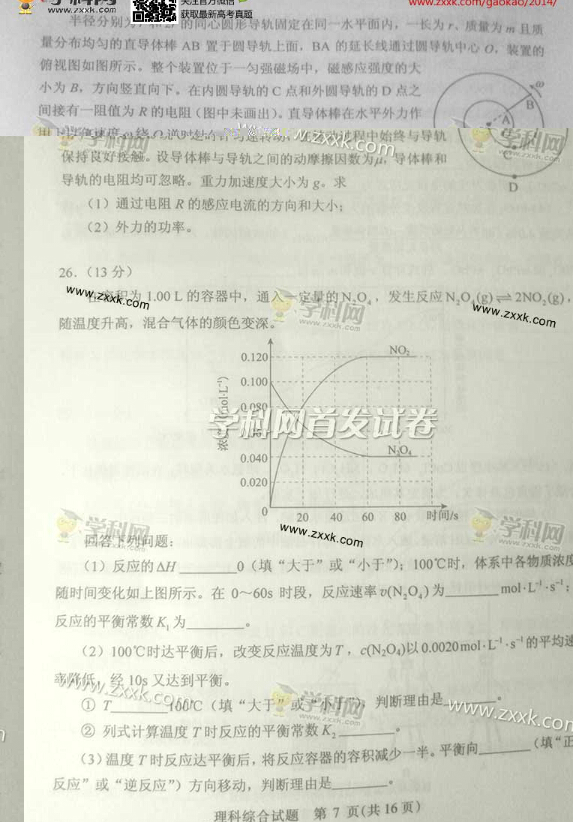 学科网
www.zxxk.com
官方微信
获取最新高考真题
www.zxxk.com/gaokao/2014/
半径分别为r和 的同心圆形导轨固定在同一水平面内，一长为r、质量为m且质
量分布均匀的直导体棒AB置于圆导轨上面，BA的延长线通过圆导轨中心O，装置的
俯视图如图所示。整个装置位于一匀强磁场中，磁感应强度的大
小为B，方向竖直向下。在内圆导轨的C点和外圆导轨的D点之
间接有一阻值为R的电阻（图中未画出）。直导体棒在水平外力作
保持良好接触。设导体棒与导轨之间的动摩擦因数为μ，导体棒和
导轨的电阻均可忽略。重力加速度大小为g。求
（1）通过电阻R的感应电流的方向和大小；
（2）外力的功率。
ω
B
A
C
D
26.（13分）
在容积为1.00 L的容器中，通入一定量的N₂O₄，发生反应N₂O₄(g)⇌2NO₂(g)，
随温度升高，混合气体的颜色变深。
0.120
0.100
0.080
0.040
0.020
0
NO₂
N₂O₄
20 40 60 80 时间/s
学科网首发试卷
www.zxxk.com
回答下列问题：
（1）反应的ΔH______0（填“大于”或“小于”）；100℃时，体系中各物质浓度
随时间变化如上图所示。在0～60s时段，反应速率v(N₂O₄)为______mol·L⁻¹·s⁻¹；
反应的平衡常数K₁为______。
（2）100℃时达平衡后，改变反应温度为T，c(N₂O₄)以0.0020 mol·L⁻¹·s⁻¹的平均速
率降低，经10s又达到平衡。
① T______100℃（填“大于”或“小于”），判断理由是______。
② 列式计算温度T时反应的平衡常数K₂______。
（3）温度T时反应达平衡后，将反应容器的容积减少一半。平衡向______（填“正
反应”或“逆反应”）方向移动，判断理由是______。
理科综合试题 第7页(共16页)